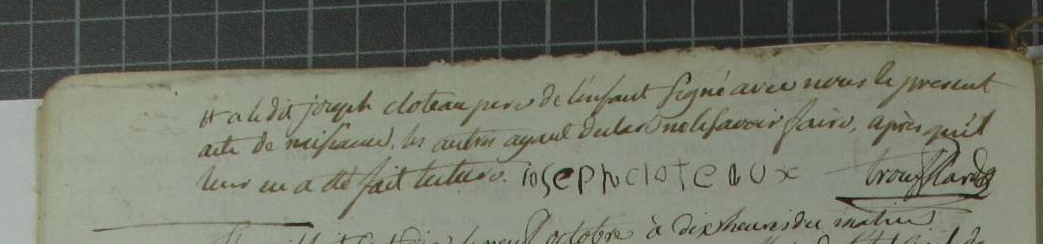 # a ledit joseph cloteau pere de l'enfant signé avec nous le present
acte de naissance, les autres ayant declaré ne le savoir faire, après qu'il
leur en a été fait lecture. iosephcloteaux trouillard
le neuf octobre à dix heures du matin